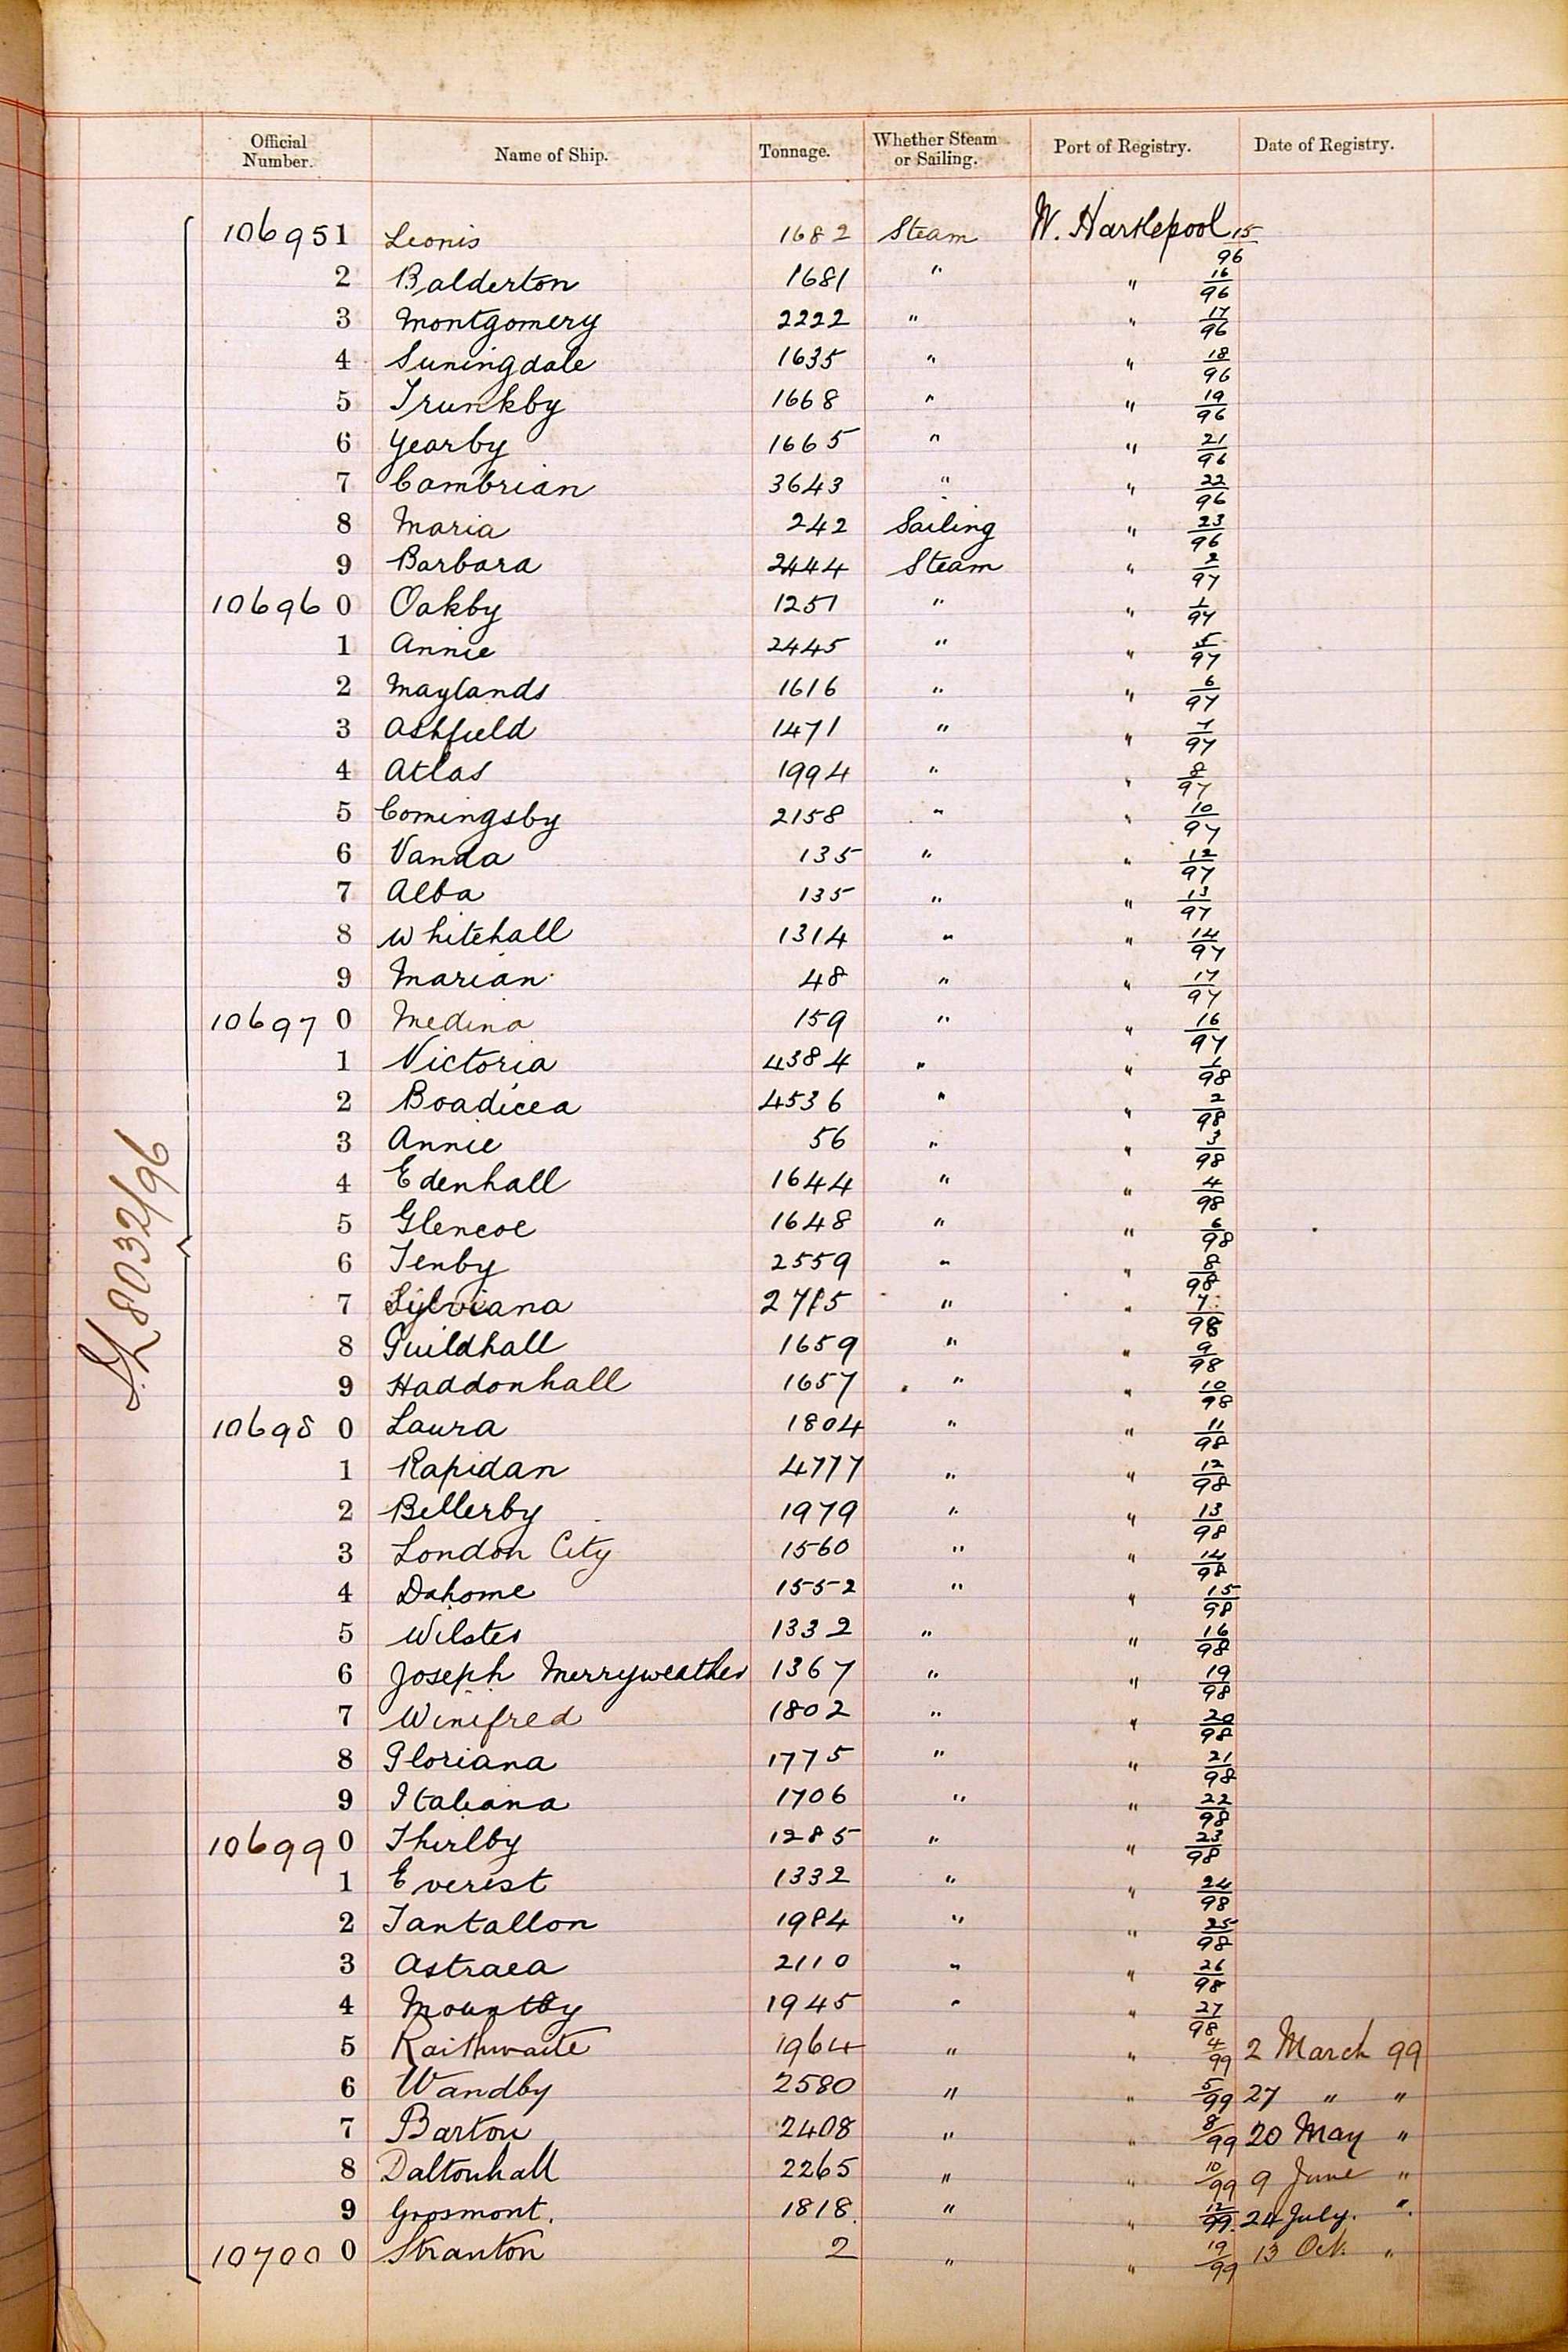 Official Number. Name of Ship. Tonnage. Whether Steam or Sailing. Port of Registry. Date of Registry.
106951 Leonis 1682 Steam W. Hartlepool 15/96
2 Balderton 1681 " " 16/96
3 Montgomery 2222 " " 17/96
4 Suningdale 1635 " " 18/96
5 Trunkby 1668 " " 19/96
6 Yearby 1665 " " 21/96
7 Cambrian 3643 " " 22/96
8 Maria 242 Sailing " 23/96
9 Barbara 2444 Steam " 2/97
106960 Oakby 1251 " " 1/97
1 Annie 2445 " " 5/97
2 Maylands 1616 " " 6/97
3 Ashfield 1471 " " 7/97
4 Atlas 1994 " " 8/97
5 Comingsby 2158 " " 10/97
6 Vanda 135 " " 12/97
7 Alba 135 " " 13/97
8 Whitehall 1314 " " 14/97
9 Marian 48 " " 17/97
106970 Medina 159 " " 16/97
1 Victoria 4384 " " 1/98
2 Boadicea 4536 " " 2/98
3 Annie 56 " " 3/98
4 Edenhall 1644 " " 4/98
5 Glencoe 1648 " " 6/98
6 Tenby 2559 " " 8/98
7 Sylviana " " 7/98
8 Guildhall 1659 " " 9/98
9 Haddonhall 1657 " " 10/98
106980 Laura 1804 " " 11/98
1 Rapidan 4777 " " 12/98
2 Bellerby 1979 " " 13/98
3 London City 1560 " " 14/98
4 Dahome 1552 " " 15/98
5 Wilster 1332 " " 16/98
6 Joseph Merryweather 1367 " " 19/98
7 Winifred 1802 " " 20/98
8 Gloriana 1775 " " 21/98
9 Italiana 1706 " " 22/98
106990 Thirlby 1285 " " 23/98
1 Everest 1332 " " 24/98
2 Tantallon 1984 " " 25/98
3 Astraea 2110 " " 26/98
4 Mountby 1945 " " 27/98
5 Raithwaite 1964 " " 4/99 2 March 99
6 Wandby 2580 " " 5/99 27 " "
7 Barton 2408 " " 8/99 20 May "
8 Daltonhall 2265 " " 10/99 9 June "
9 Grosmont. 1818 " " 12/99. 24 July. ".
107000 Stranton 2 " " 19/99 13 Oct. "
8032/96